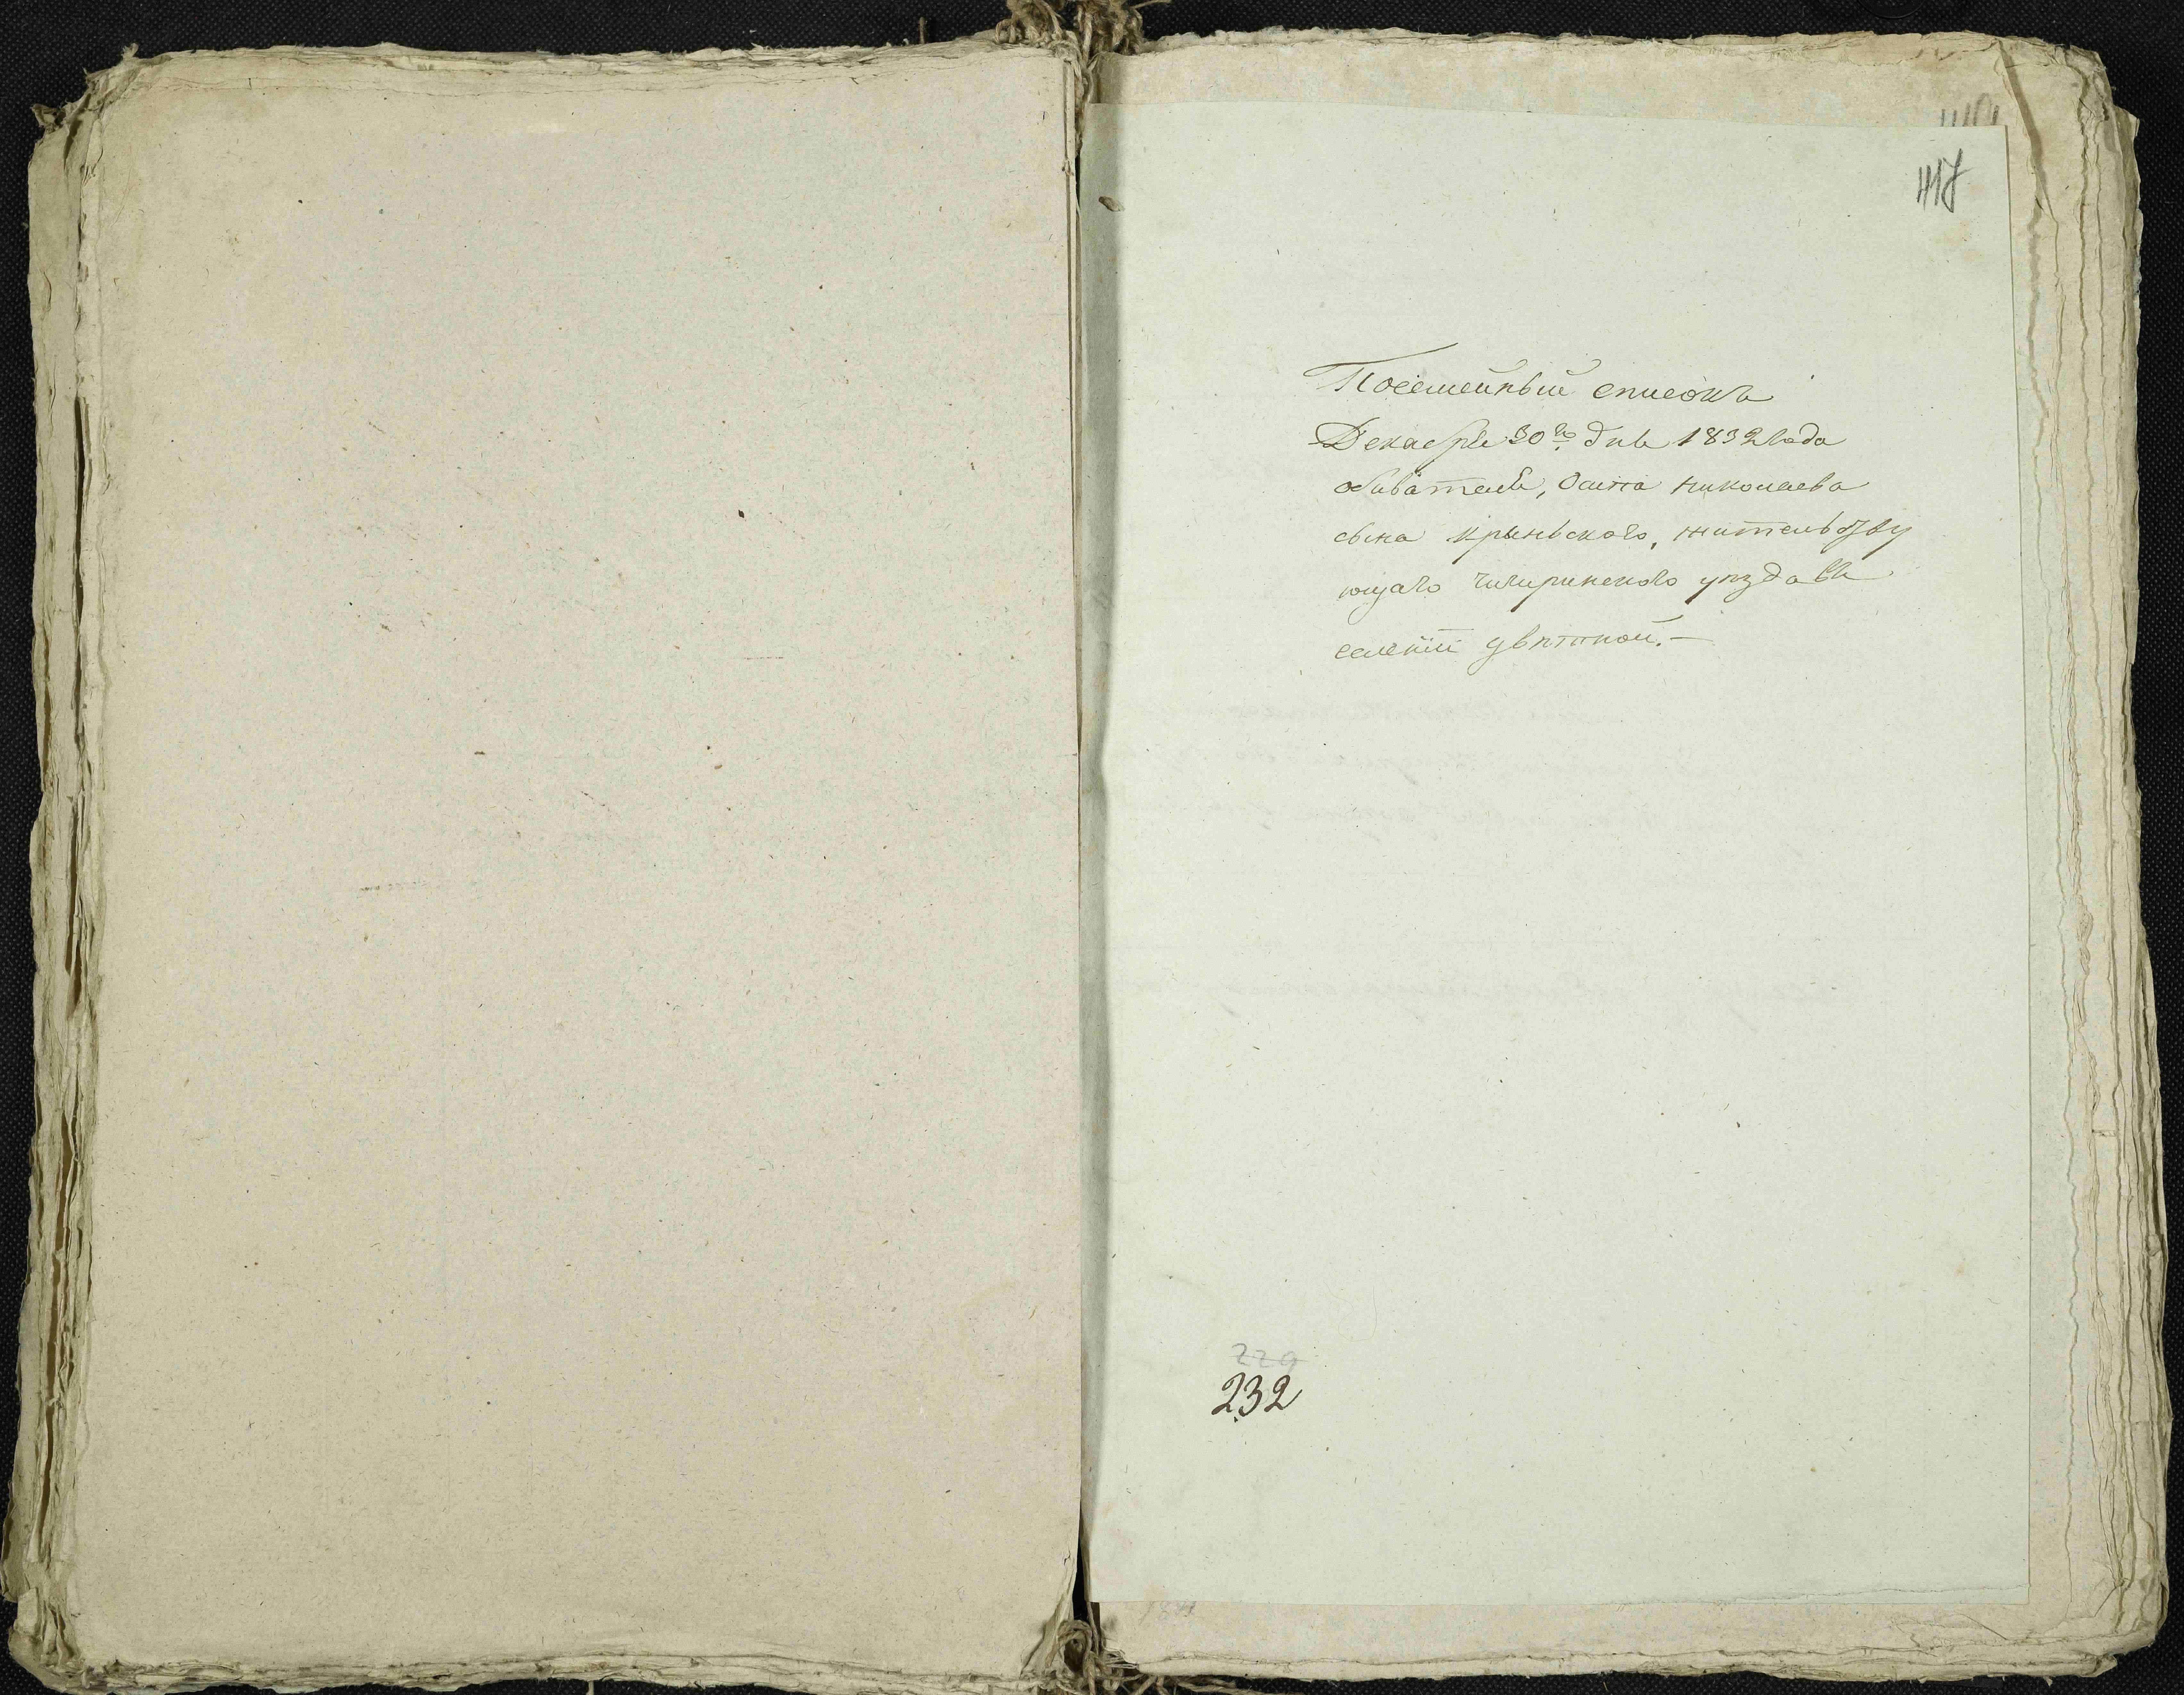 417
Посемейный списокъ
Декабря 30го дня 1832 года
обивателя, Осипа Николаева
сына Крыньского, жительству
ющаго Чигиринского уѣзда въ
селенїи Цвѣтной.—
229
232